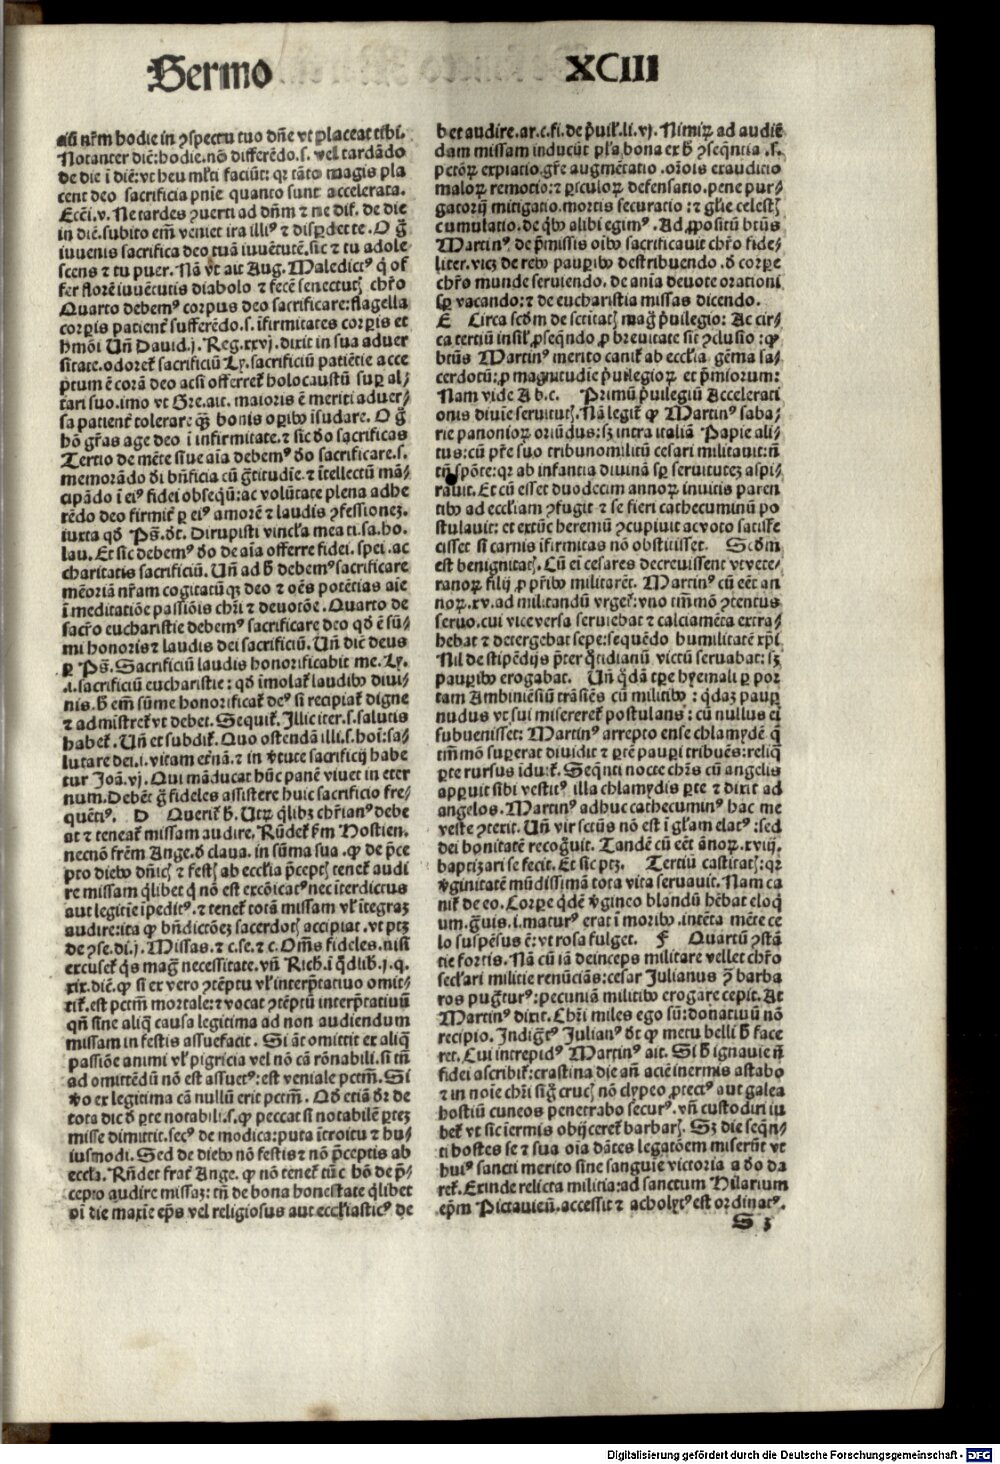 Sermo
XCIII
nr̃m hodie in ↄspectu tuo dñe vt placeat tibi.
Notanter diẽ: hodie. nõ differẽdo .s. vel tardãdo
de die ĩ diẽ: vt heu ml̃ti faciũt: qr tãto magis pla
cent deo sacrificia pñie quanto sunt accelerata.
Eccĩ.v. Ne tardes ↄuerti ad dñm ⁊ ne dif. de die
in diẽ. subito em̃ veniet ira illiꝰ ⁊ disꝑdet te. O g̃
iuuenis sacrifica deo tuã iuuẽtutẽ. sic ⁊ tu adole
scens ⁊ tu puer. Nã vt ait Aug. Maledictꝰ q̇ of
fer florẽ iuuẽtutis diabolo ⁊ fecẽ senectutꝭ chr̃o
Quarto debemꝰ corpus deo sacrificare: flagella
corꝑis patienť sufferẽdo .s. ĩfirmitates corꝑis et
hmõi Vñ Dauid .j. Reg.xxvj. dixit in sua aduer
sitate. odoreť sacrificiũ Ly. sacrificiũ patiẽtie acce
ptum ẽ corã deo acsi offerreť holocaustũ suꝑ al/
tari suo. imo vt Gre. ait. maioris ẽ meriti aduer/
sa patienť tolerare qꝫ̃ bonis oꝑibꝰ ĩsudare. O g̃
hõ gr̃as age deo ĩ infirmitate. ⁊ sic deo sacrificas
Tertio de mẽte siue aĩa debemꝰ deo sacrificare .s.
memorãdo dei bñficia cũ g̃titudĩe. ⁊ ĩtellectũ mã/
cipãdo ĩ eiꝰ fidei obseqũ: ac volũtate plena adhe
rẽdo deo firmiť ꝑ eiꝰ amorẽ ⁊ laudis ↄfessionez.
iuxta qd Ps̃. dt. Dirupisti vincl̃a mea ti. sa. ho.
lau. Et sic debemꝰ deo de aĩa offerre fidei. spei. ac
charitatis sacrificiũ. Vñ ad h̃ debemꝰ sacrificare
mẽoriã nr̃am cogitatũ qꝫ deo ⁊ oẽs potẽtias aĩe
ĩ meditatiõe passiõis chr̃i ⁊ deuotõe. Quarto de
sacr̃o eucharistie debemꝰ sacrificare deo qd ẽ sũ/
mi honoris ⁊ laudis dei sacrificiũ. Vñ diẽ deus
ꝑ Ps̃. Sacrificiũ laudis honorificabit me. Ly.
.i. sacrificiũ eucharistie: qd ĩmolať laudibꝰ diui/
nis. h̃ em̃ sũme honorificať deꝰ si recipiať digne
⁊ admĩstreť vt debet. Sequiť. Illic iter .s. salutis
habeť. Vñ et subdiť. Quo ostendã illi .s. hoĩ: sa/
lutare dei .i. vitam etẽnã. ⁊ in v̓tute sacrificij habe
tur Joã.vj. Qui mãducat hũc panẽ viuet in eter
num. Debẽt g̃ fideles assistere huic sacrificio fre/
quẽtiꝰ. D Queriť h̃. Utꝝ q̃libꝫ chr̃ianꝰ debe
at ⁊ teneať missam audire. Rñdeť ẜm Hostien.
necnõ frẽm Ange. de claua. in sũma sua. ꝙ de p̃ce
pto diebꝰ dñicꝭ ⁊ festꝭ ab eccl̃ia p̃ceptꝭ teneť audi
re missam q̃libet q̇ nõ est excõicatꝰ nec ĩterdictus
aut legitĩe ĩpeditꝰ. ⁊ teneť totã missam vl̃ ĩtegraz
audire: ita ꝙ bñdictõez sacerdotꝭ accipiat. vt ptꝫ
de ↄse. di. j. Missas. ⁊ c. se. ⁊ c. Om̃s fideles. nisi
excuseť q̃s mag̃ necessitate. vñ Rich. ĩ q̃dlib. j. q.
xix. diẽ. ꝙ si ex vero ↄtẽptu vl̃ interp̃tatiuo omit/
tiť. est pctm̃ mortale: ⁊ vocat ↄtẽptũ interp̃tatiuũ
qñ sine aliq̃ causa legitima ad non audiendum
missam in festis assuefacit. Si ãt omittit ex aliq̃
passiõe animi vl̃ pigricia vel nõ cã rõnabili. si tñ
ad omittẽdũ nõ est assuetꝰ: est veniale pctm̃. Si
v̓o ex legitima cã nullũ erit pctm̃. Qd etiã dr̃ de
tota dico de ꝑte notabili .s. ꝙ peccat si notabilẽ ꝑtez
misse dimittit. secꝰ de modica: puta ĩtroitu ⁊ hu/
iusmodi. Sed de diebꝰ nõ festis ⁊ nõ p̃ceptis ab
eccl̃a. Rñdet frať Ange. ꝙ nõ teneť tũc hõ de p̃/
cepto audire missaz: tñ de bona honestate q̃libet
oĩ die maxĩe ep̃s vel religiosus aut eccl̃iasticꝰ de
bet audire. ar. c. fi. de p̃uil̃. li. vj. Nimiꝝ ad audiẽ
dam missam inducũt pl̃a bona ex h̃ ↄseq̃ntia .s.
petõꝝ expiatio. gr̃e augmẽtatio. orõis exauditio
maloꝝ remotio: ⁊ ꝑiculoꝝ defensatio. pene pur/
gatorij mitigatio. mortis securatio: ⁊ gl̃ie celestꝭ
cumulatio. de q̃bꝰ alibi egimꝰ. Ad ꝓpositũ btũs
Martinꝰ de p̃missis oĩbꝰ sacrificauit chr̃o fide/
liter. vicꝫ de rebꝰ pauꝑibꝰ destribuendo. de corꝑe
chr̃o munde seruiendo. de aĩa deuote orationi
sꝑ vacando: ⁊ de eucharistia missas dicendo.
E Circa scd̃m de sctĩtatꝭ mag̃ p̃uilegio: Ac cir/
ca tertiũ insil̃ ꝓseq̃ndo ꝓ breuitate sit ↄclusio: ꝙ
btũs Martinꝰ merito caniť ab eccl̃ia gẽma sa/
cerdotũ: ꝓ magnitudĩe p̃uilegioꝝ et p̃mioruꝫ:
Nam vide A. b. c. Primũ p̃uilegiũ Accelerati
onis diuĩe seruitutꝭ. Nã legiť ꝙ Martinꝰ saba/
rie panonioꝝ oriũdus: sꝫ intra italiã Papie ali/
tus: cũ pr̃e suo tribunomilitũ cesari militauit: ñ
tñ spõte: qr ab infantia diuinã sꝑ seruitutez aspi/
rauit. Et cũ esset duodecim annoꝝ inuitis paren
tibꝰ ad eccl̃iam ↄfugit ⁊ se fieri cathecuminũ po
stulauit: et extũc heremũ ↄcupiuit ac voto satisfe
cisset si carnis ĩfirmitas nõ obstitisset. Scd̃m
est benignitatꝭ. Cũ ei cesares decreuissent vt vete/
ranoꝝ filij ꝓ pr̃ibꝰ militarẽt. Martinꝰ cũ eẽt an
noꝝ .xv. ad militandũ vrgeť: vno tm̃mõ ↄtentus
seruo. cui viceuersa seruiebat ⁊ calciamẽta extra/
hebat ⁊ detergebat sepe: sequẽdo humilitatẽ xp̃i.
Nil de stipẽdijs p̃ter q̃tidianũ victũ seruabat: sꝫ
pauꝑibꝰ erogabat. Uñ q̃dã tꝑe hyemali ꝑ por
tam Ambiniẽsiũ trãsiẽs cũ militibꝰ: q̃daz pauꝑ
nudus vt sui misereret̃ postulans: cũ nullus ei
subuenisset: Martinꝰ arrepto ense chlamydẽ q̃
tm̃mõ suꝑerat diuidit ⁊ ꝑtẽ pauꝑi tribuẽs: reliq̃
ꝑte rursus ĩduiť. Seq̃nti nocte chr̃s cũ angelis
apparuit sibi vestitꝰ illa chlamydis ꝑte ⁊ dixit ad
angelos. Martinꝰ adhuc cathecuminꝰ hac me
veste ↄtexit. Uñ vir sctũs nõ est ĩ gl̃am elatꝰ: sed
dei bonitatẽ recog̃uit. Tandẽ cũ eẽt ãnoꝝ .xviij.
baptizari se fecit. Et sic ptꝫ. Tertiũ castitatꝭ: qr
v̓ginitatẽ mũdissimã tota vita seruauit. Nam ca
niť de eo. Corꝑe q̃dẽ v̓gineo blandũ hẽbat eloq̃
um. g̃uis .i. maturꝰ erat ĩ moribꝰ. intẽta mẽte ce
lo suspẽsus ẽ: vt rosa fulget. F Quartũ ↄstã
tie fortis. Nã cũ iã deinceps militare vellet chr̃o
secl̃ari militie renũciãs: cesar Julianus ↄ̃ barba
ros pug̃turꝰ: pecuniã militibꝰ erogare cepit. At
Martinꝰ dixit. Chr̃i miles ego sũ: donatiuũ nõ
recipio. Indig̃tꝰ Julianꝰ dt ꝙ metu belli h̃ face
ret. Cui intrepidꝰ Martinꝰ ait. Si h̃ ignauie ñ
fidei ascribiť: crastina die añ aciẽ inermis astabo
⁊ in noĩe chr̃i sig̃ crucꝭ nõ clypeo ꝓtectꝰ aut galea
hostiũ cuneos penetrabo securꝰ. vñ custodiri iu
beť vt sic ĩermis obijcereť barbarꝭ. Sꝫ die seq̃n/
ti hostes se ⁊ sua oĩa dãtes legatõem miserũt vt
huiꝰ sancti merito sine sanguĩe victoria a deo da
reť. Exinde relicta militia: ad sanctum Hilarium
ep̃m Pictauieñ. accessit ⁊ acholytꝰ est ordinatꝰ.
S 3
Digitalisierung gefördert durch die Deutsche Forschungsgemeinschaft - DFG